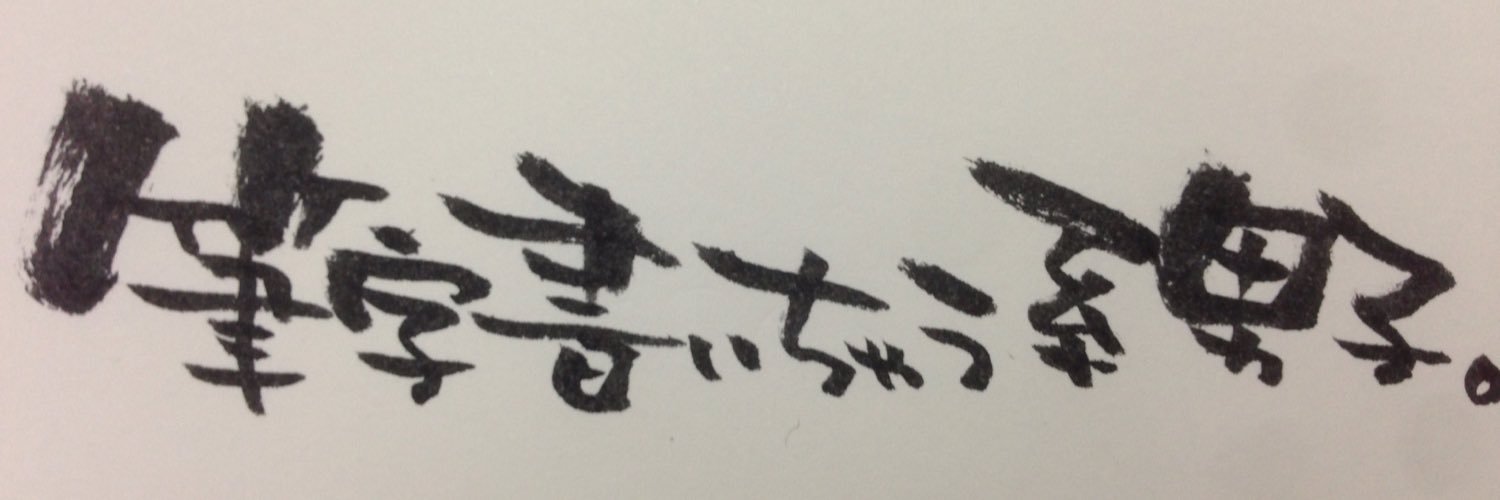 筆字書いちゃう系男子。